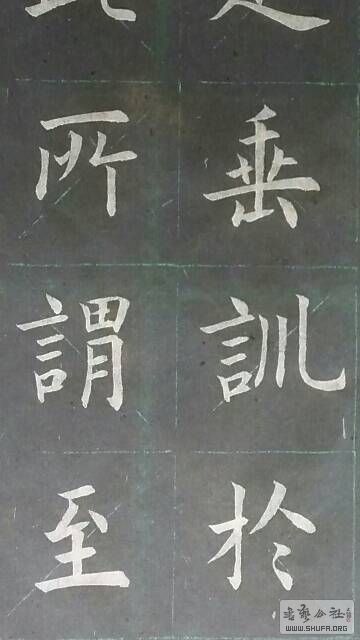 垂訓於
所謂至
WWW.SHUFA.ORG